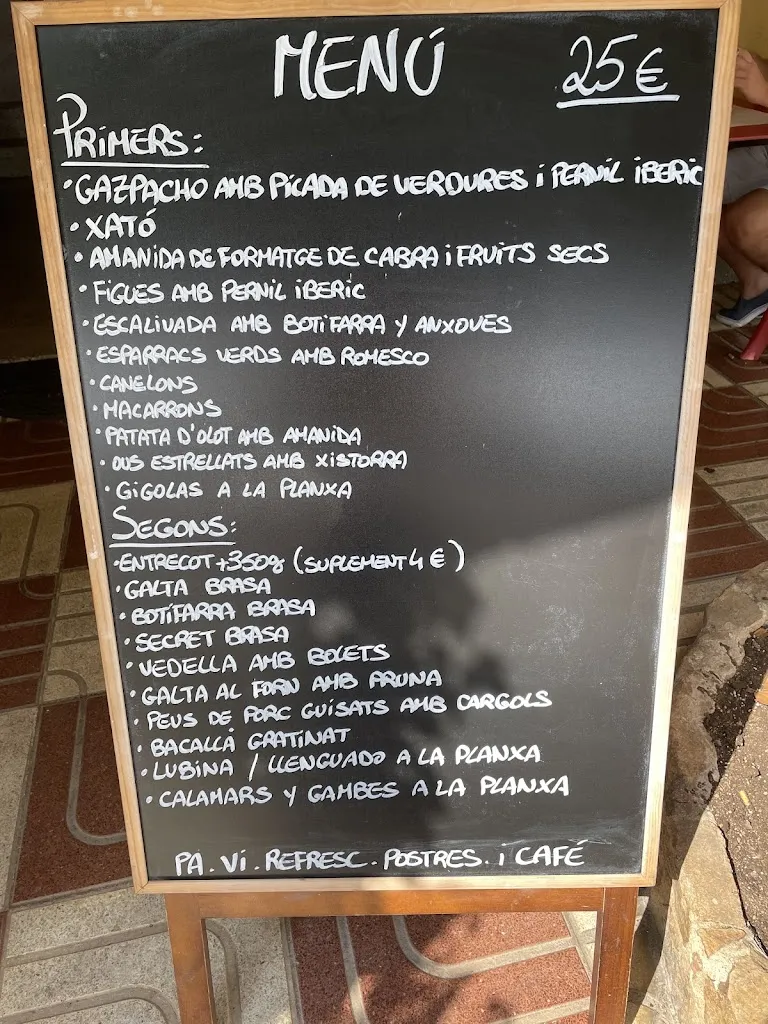 MENÚ 25€
PRIMERS:
• GAZPACHO AMB PICADA DE VERDURES i PERNIL IBERIC
• XATÓ
• AMANIDA DE FORMATGE DE CABRA i FRUITS SECS
• FIGUES AMB PERNIL IBERIC
• ESCALIVADA AMB BOTIFARRA Y ANXOVES
• ESPARRACS VERDS AMB ROMESCO
• CANELONS
• MACARRONS
• PATATA D'OLOT AMB AMANIDA
• OUS ESTRELLATS AMB XISTORRA
• GIGOLAS A LA PLANXA
SEGONS:
• ENTRECOT +350g (SUPLEMENT 4 €)
• GALTA BRASA
• BOTIFARRA BRASA
• SECRET BRASA
• VEDELLA AMB BOLETS
• GALTA AL FORN AMB PRUNA
• PEUS DE PORC GUISATS AMB CARGOLS
• BACALLÀ GRATINAT
• LUBINA / LLENGUADO A LA PLANXA
• CALAMARS Y GAMBES A LA PLANXA
PA. VI. REFRESC. POSTRES. i CAFÉ